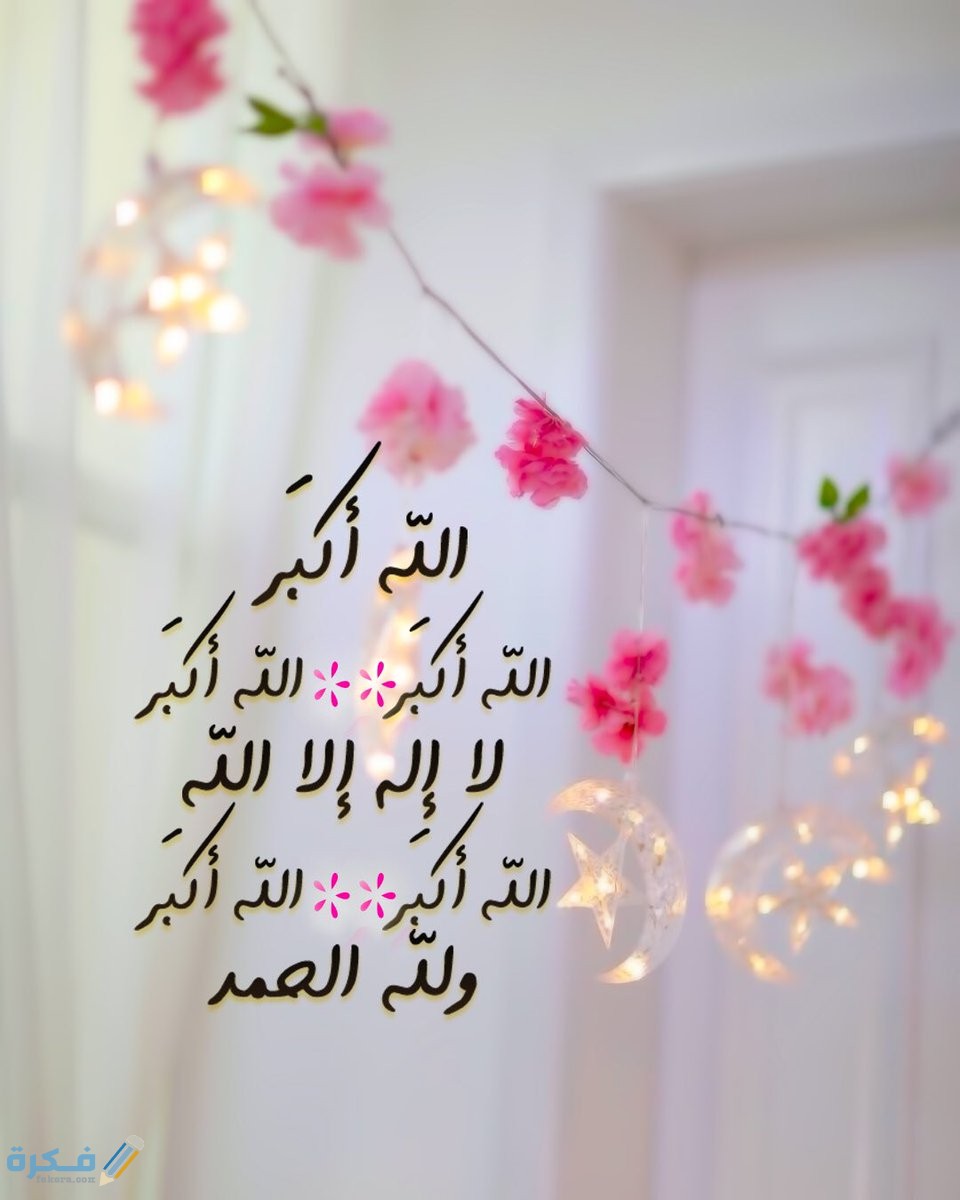 اللّه أكبَر
اللّه أكبَر ** اللّه أكبَر
لا إله إلا اللّه
اللّه أكبَر ** اللّه أكبَر
وللّه الحمد
فكرة
fekera.com